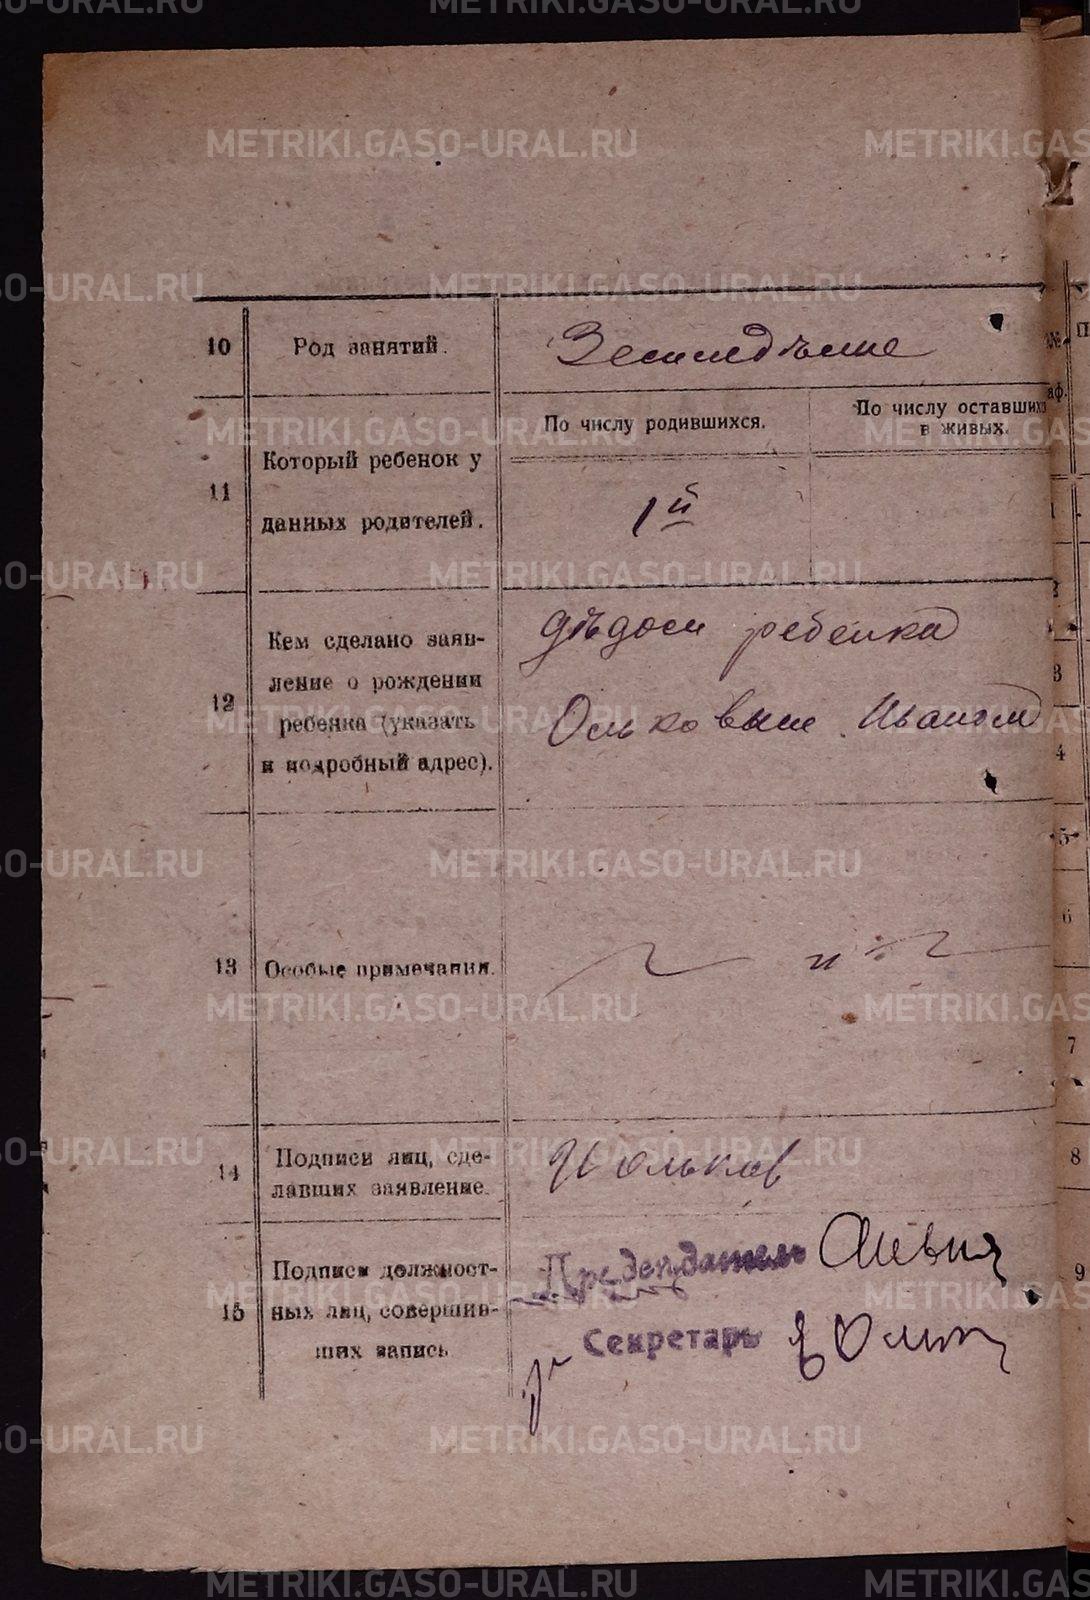 METRIKI.GASO-URAL.RU
10 Род занятий. Земледѣлие
11 Который ребенок у данных родителей.
По числу родившихся.
По числу оставших
в живых.
1й
12 Кем сделано заяв-
ление о рождении
ребенка (указать
и подробный адрес).
Дѣдом ребенка
Ольковым Иваном
13 Особые примечания.
14 Подписи лиц, сде-
лавших заявление.
И Ольков
15 Подписи должност-
ных лиц, совершив-
ших запись
Председатель
Секретарь
1
3
4
5
6
7
8
9